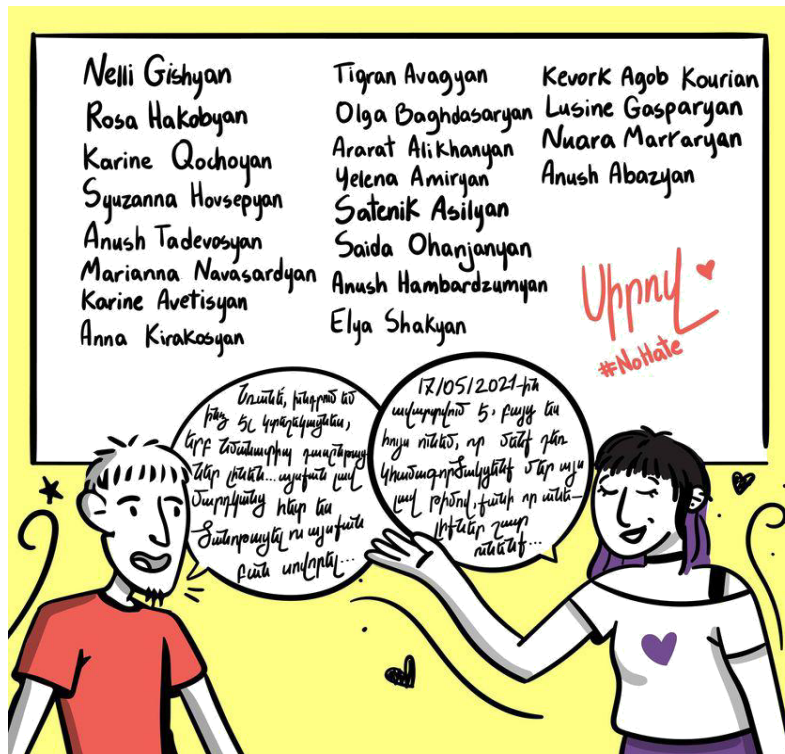 Nelli Gishyan
Rosa Hakobyan
Karine Qochoyan
Syuzanna Hovsepyan
Anush Tadevosyan
Marianna Navasardyan
Karine Avetisyan
Anna Kirakosyan
Tigran Avagyan
Olga Baghdasaryan
Ararat Alikhanyan
Yelena Amiryan
Satenik Asilyan
Saida Ohanjanyan
Anush Hambardzumyan
Elya Shakyan
Kevork Agob Kourian
Lusine Gasparyan
Nuara Marraryan
Anush Abazyan
Սիրով
#NoHate
խնդրում եմ
ինձ էլ կտեղեկացնես,
երբ նմանատիպ դասընթաց
ներ լինեն... այսքան լավ
մարդկանց հետ ես
ծանոթացել ու այսքան
բան սովորել...
17/05/2021-ին
ավարտվում է, բայց ես
հույս ունեմ, որ մենք դեռ
կհամագործակցենք մեր այս
լավ թիմով, քանի որ անե-
լիքներ շատ
ունենք...